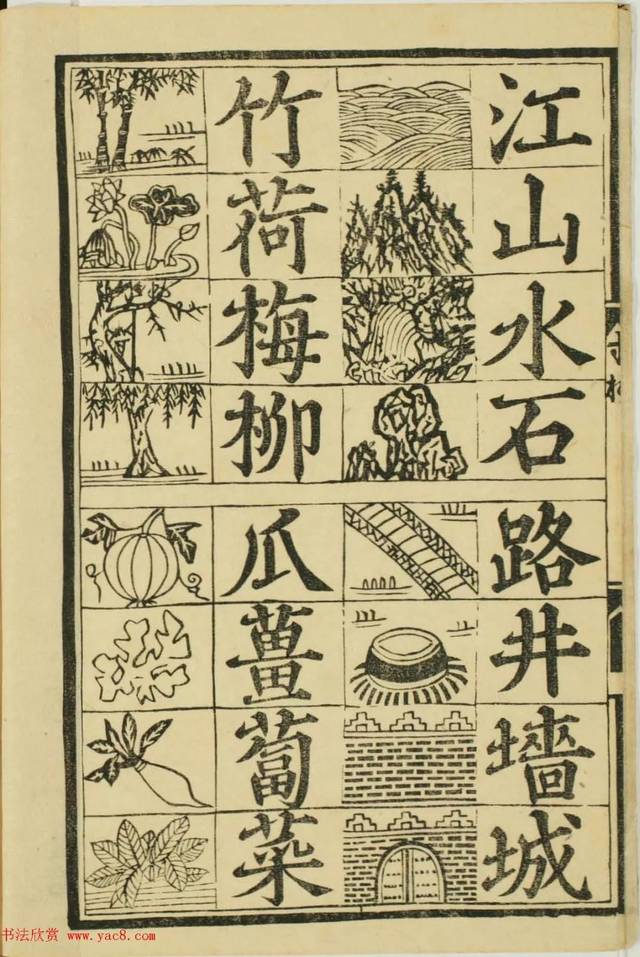 江山水石
路井墻城
竹荷梅柳
瓜薑蔔菜
书法欣赏 www.yac8.com